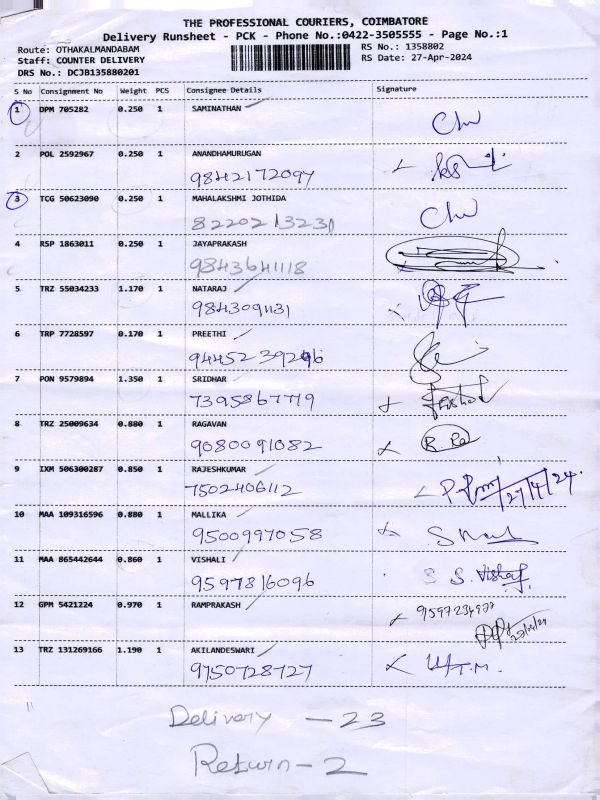 THE PROFESSIONAL COURIERS, COIMBATORE
Delivery Runsheet - PCK - Phone No.:0422-3505555 - Page No.:1
Route: OTHAKALMANDABAM
RS No.: 1358802
Staff: COUNTER DELIVERY
RS Date: 27-Apr-2024
DRS No.: DCJB135880201
S No Consignment No Weight PCS Consignee Details Signature
1 DPM 705282 0.250 1 SAMINATHAN
2 POL 2592967 0.250 1 ANANDHAMURUGAN
9842172097
3 TCG 50623090 0.250 1 MAHALAKSHMI JOTHIDA
8220213231
4 RSP 1863011 0.250 1 JAYAPRAKASH
9843641118
5 TRZ 55034233 1.170 1 NATARAJ
9843091131
6 TRP 7728597 0.170 1 PREETHI
9445239296
7 PON 9579894 1.350 1 SRIDHAR
7395867719
8 TRZ 25009634 0.880 1 RAGAVAN
9080091082
9 IXM 506300287 0.850 1 RAJESHKUMAR
7502406112 27/4/24.
10 MAA 109316596 0.880 1 MALLIKA
9500997058
11 MAA 865442644 0.860 1 VISHALI
9597816096
12 GPM 5421224 0.970 1 RAMPRAKASH
13 TRZ 131269166 1.190 1 AKILANDESWARI
9750728727
Delivery - 23
Return - 2